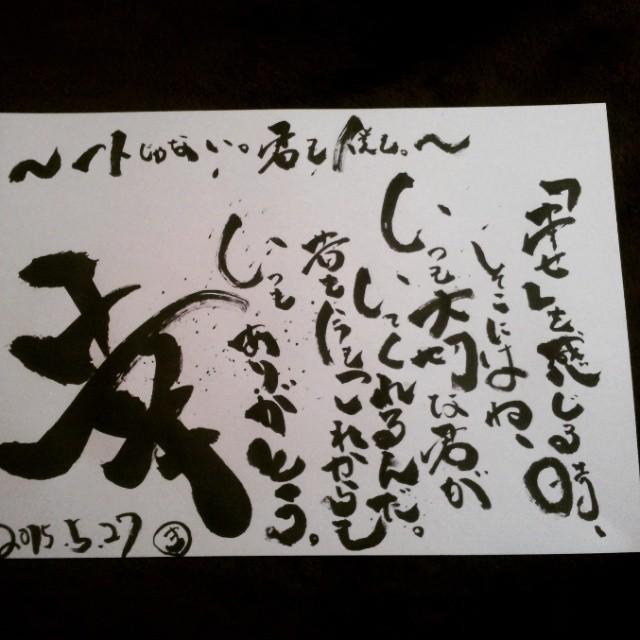 ～一人じゃない。君も も。～
「幸せ」を感じる時、
そこにはね、
いつも大切な君が
いてくれるんだ。
昔も今もこれからも
いつもありがとう。
2015.5.27